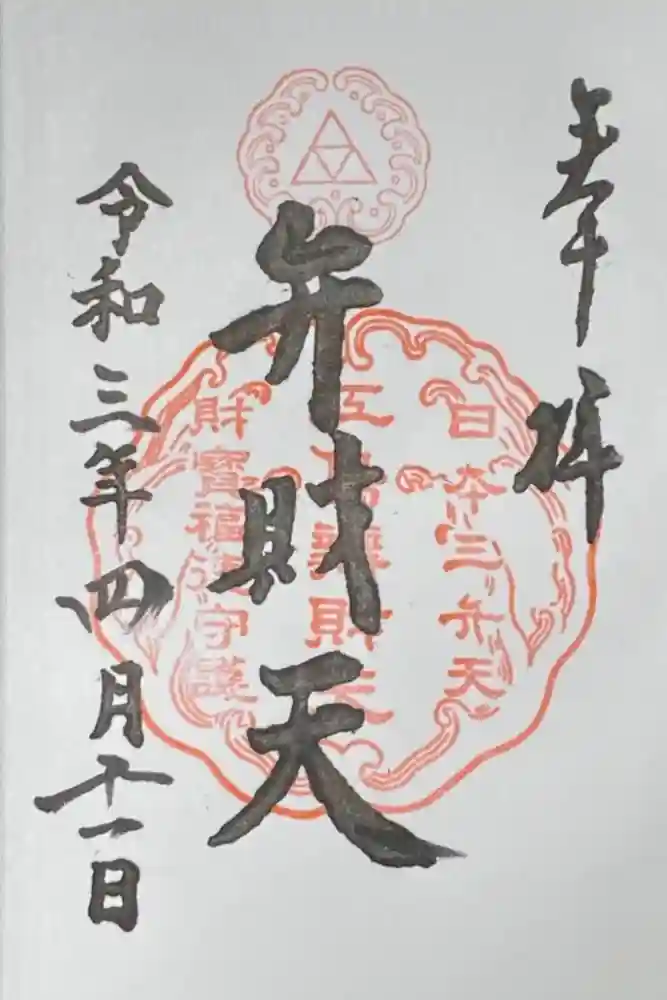 奉拝
日本三弁天
弁財天
江島辨財天
財寶福徳守護
令和三年四月十一日